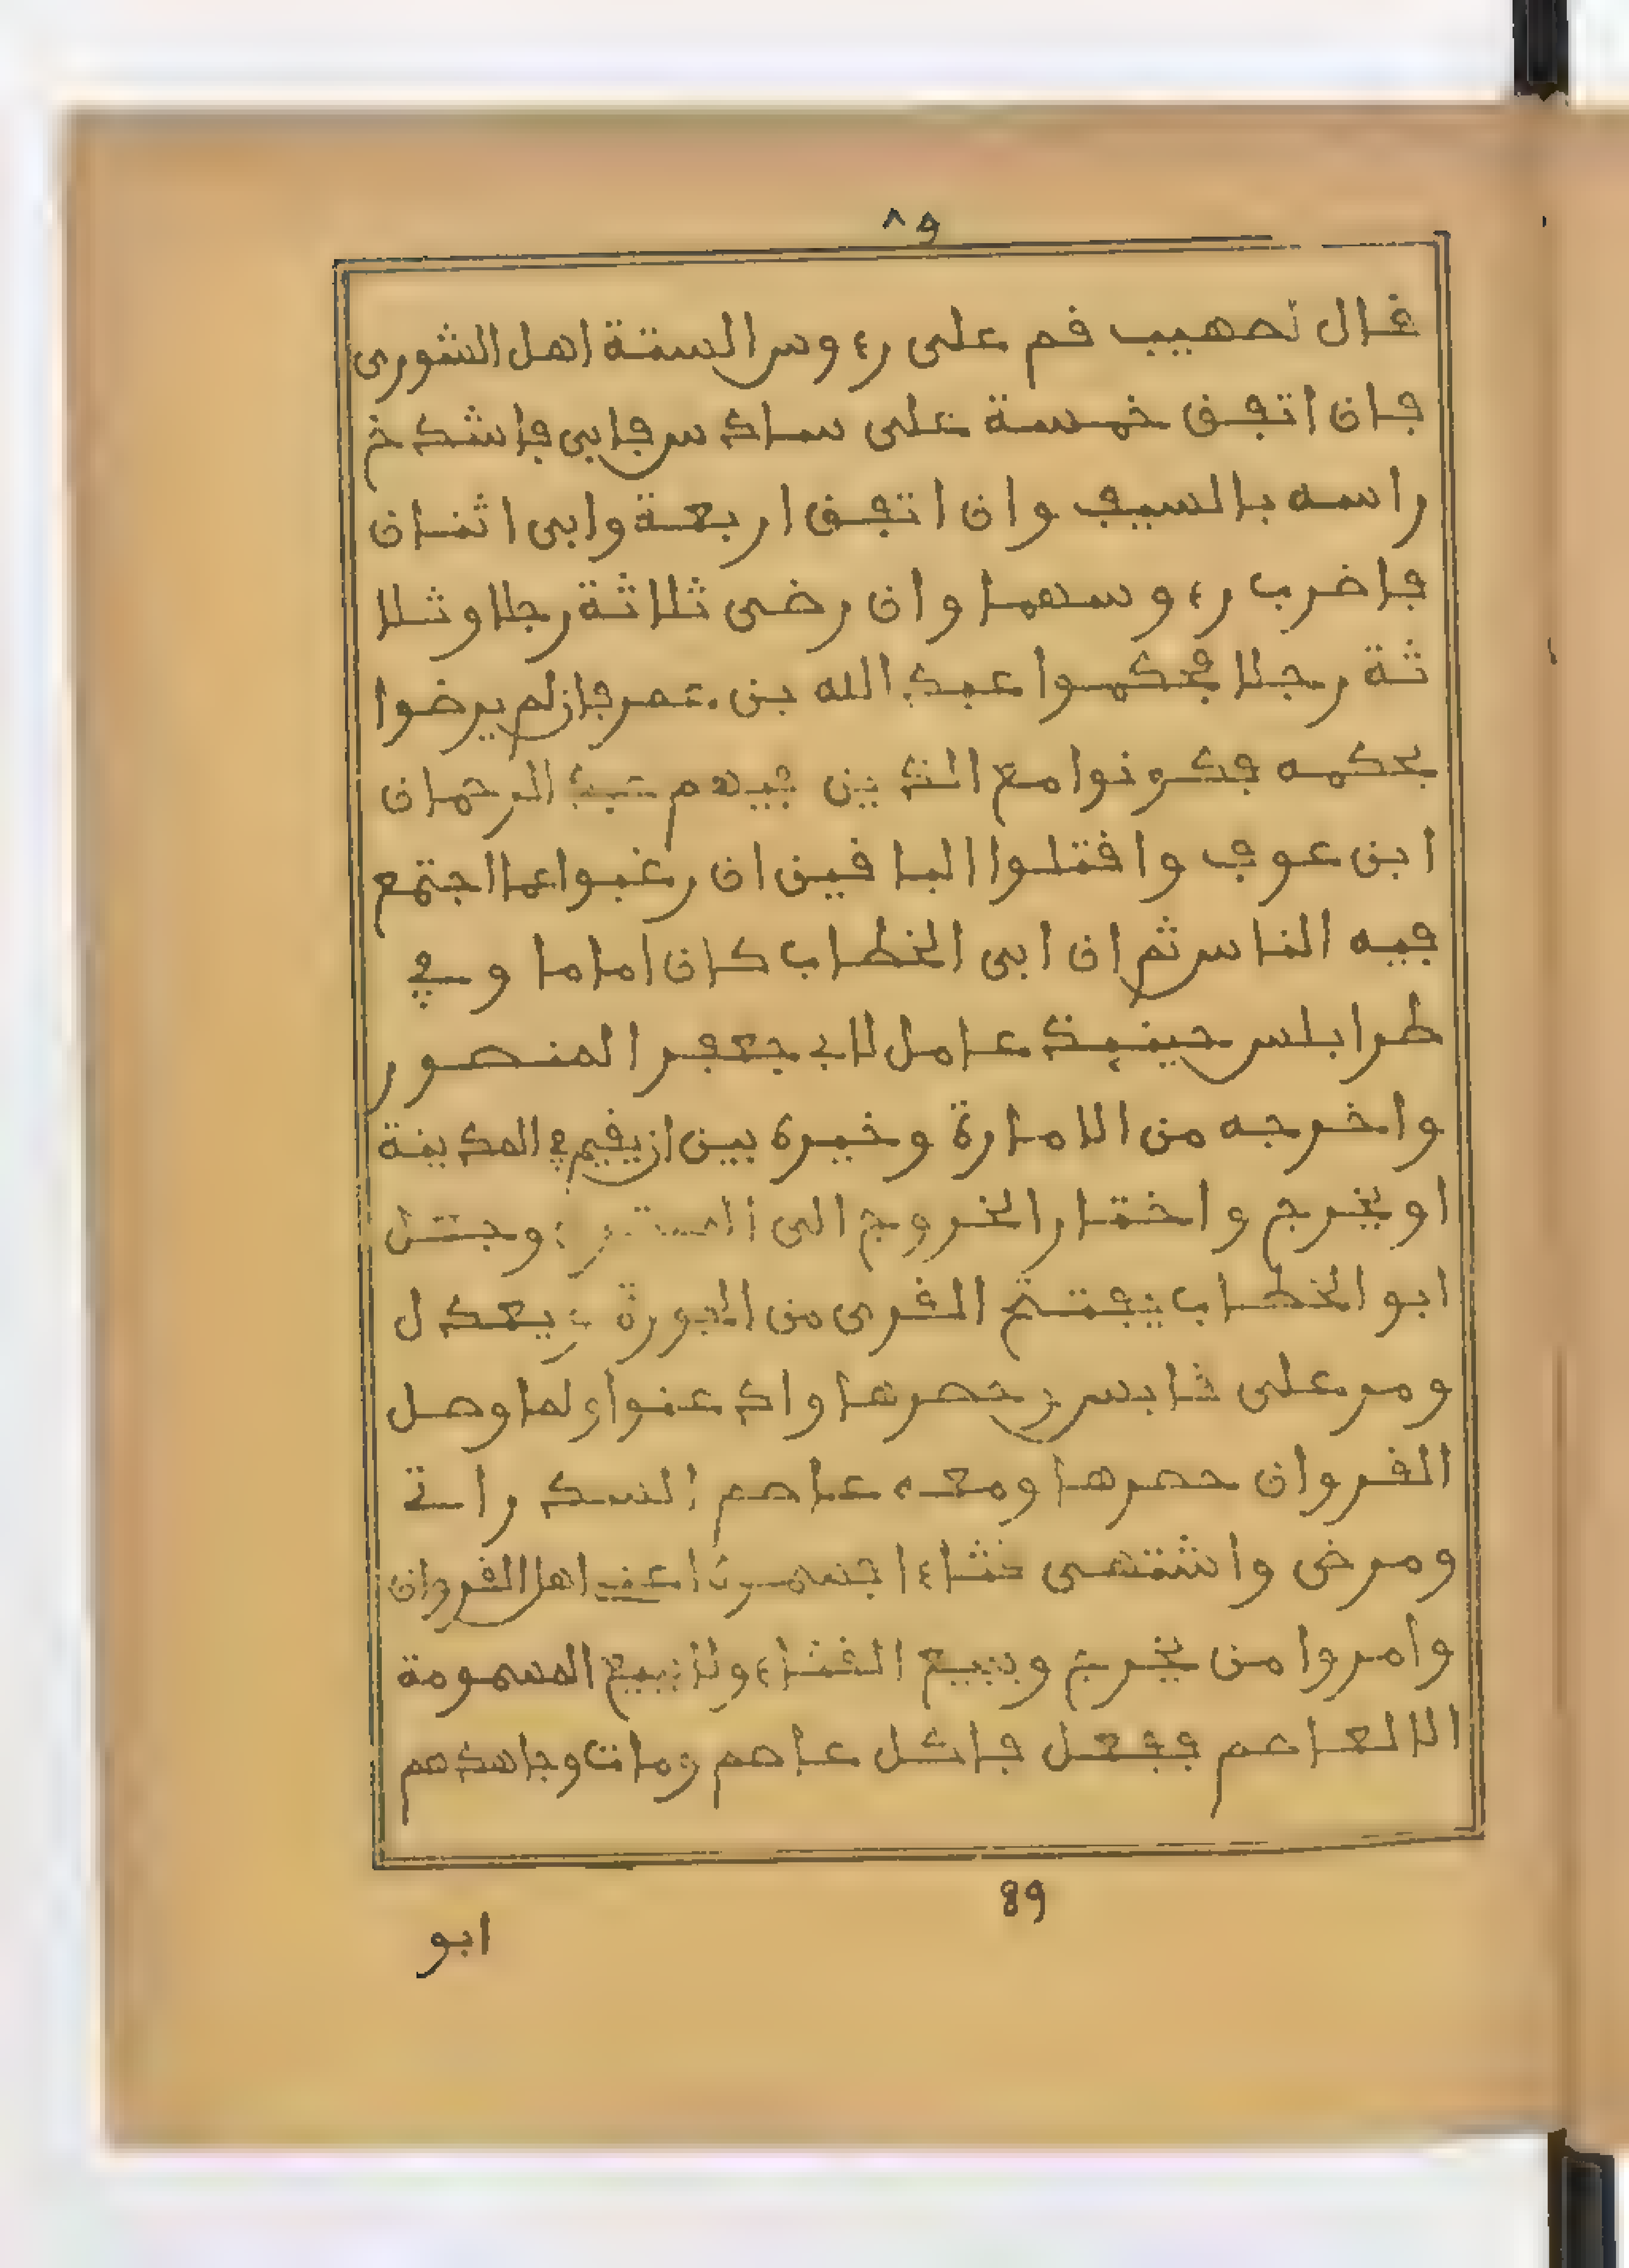 ٨٩
قال لصهيب قم على رءوس الستة اهل الشورى
فان اتفق خمسة على ساد سر فابى فاشدخ
راسه بالسيف وان اتفق اربعة وابى اثنان
فاضرب رءوسهما وان رضى ثلاثة رجلا وثلا
ثة رجلا فحكموا عبد الله بن عمر فان لم يرضوا
بحكمه فكونوا مع الذين فيهم عبد الرحمان
ابن عوف واقتلوا الباقين ان رغبوا عما اجتمع
فيه الناس ثم ان ابى الخطاب كان اماما وفي
طرابلس حينيذ عامل لابي جعفر المنصور
واخرجه من الامارة وخيره بين ان يقيم في المدينة
او يخرج واختار الخروج الى المشرق وجعل
ابو الخطاب يفتح القرى من الجورة ويعدل
ومر على قابس وحصرها واذعنوا ولما وصل
القروان حصرها ومعه عاصم السدراتي
ومرض واشتهى قثاء اهل القروان
وامروا من يخرج ويبيع القثاء ولا يبيع المسمومة
الا لعاصم ففعل فاكل عاصم ومات وجاهدهم
89
ابو